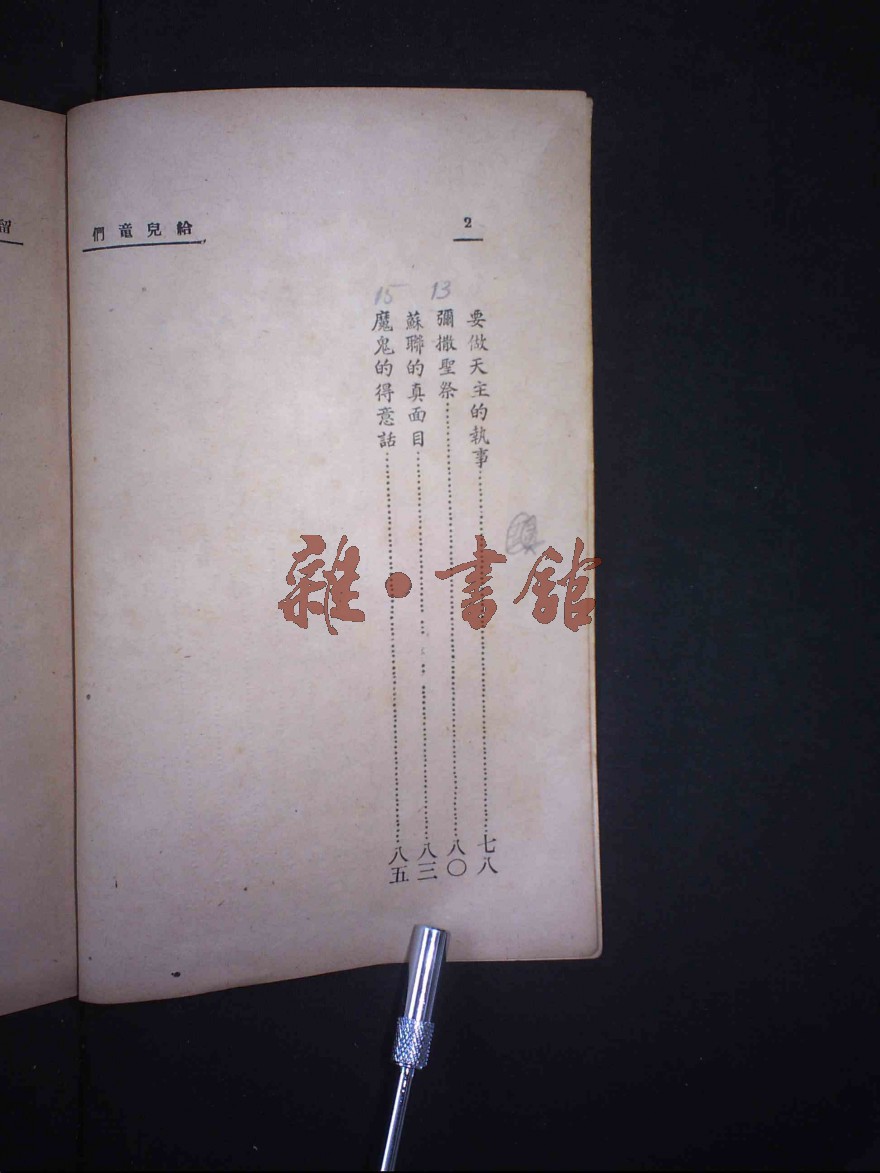 給兒童們
2
要做天主的執事⋯⋯七八
13
彌撒聖祭⋯⋯八〇
蘇聯的真面目⋯⋯八三
15
魔鬼的得意話⋯⋯八五
雜·書館